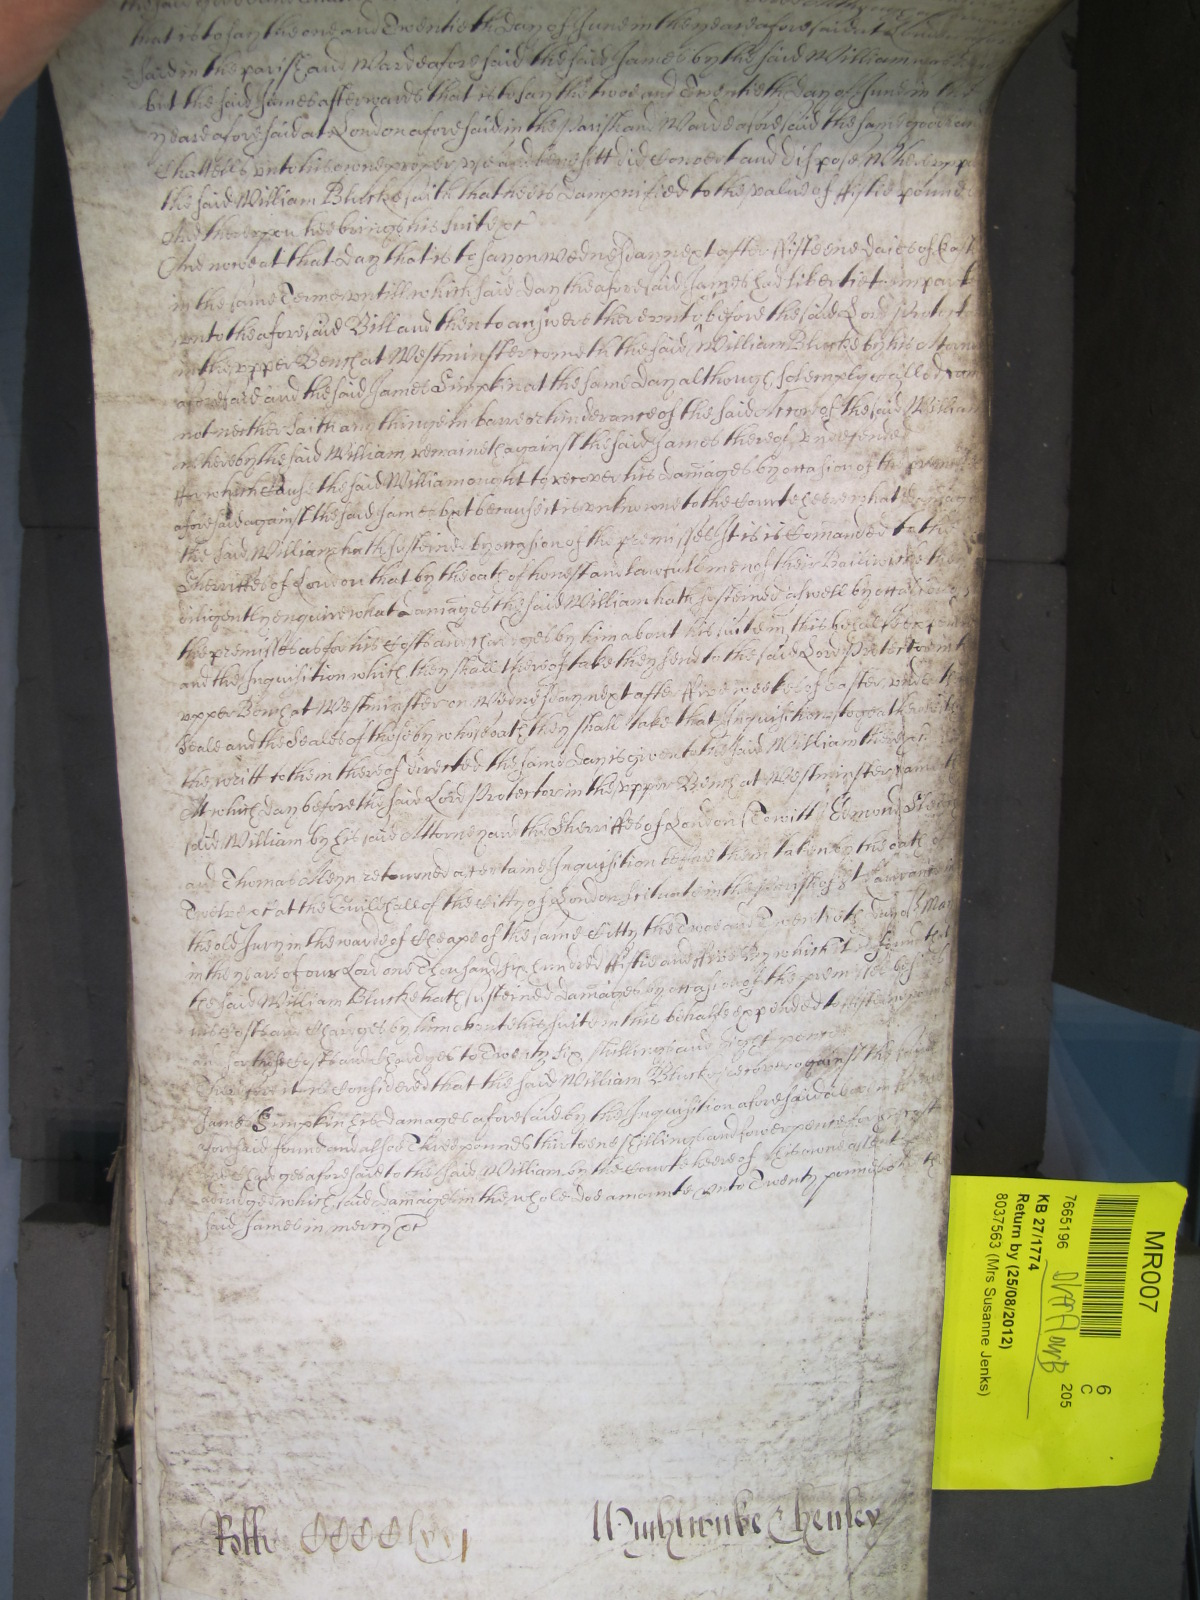 that is to say the one and Twentieth day of June in the yeare aforesaid at London
said in the parish and Warde aforesaid the said James by the said William was
but the said James afterwards that is to say the twoe and Twentieth day of June in the
yeare aforesaid at London aforesaid in the Parish and Warde aforesaid the same goods and
Chattells unto his owne proper use and benefitt did Convert and dispose Whereuppon
the said William Blucke saith that hee is dampnified to the value of ffiftie pounds
And thereupon hee bringes his suite &ct
And nowe at that day that is to say on Wednesday next after ffifteene daies of East
in the same Terme untill which said day the aforesaid James had libertie to imparle
unto the aforesaid Bill and then to answere thereunto before the said Lord Protector
in the upper Bench at Westminster cometh the said William Blucke by his Attorney
aforesaid and the said James Simpkin at the same day although solemply called came
not neither saith any thinge in barre or hinderance of the said Accon of the said William
whereby the said William remaineth against the said James thereof undefended
ffor which Cause the said William ought to recover his damages by occasion of the premisses
aforesaid against the said James but because it is unknowne to the Courte heere what damages
the said William hath susteined by occasion of the premisses It is is Comanded to the
Sherriffes of London that by the oath of honest and lawfull men of their Bailiwicke they
diligently enquire what damages the said William hath susteined aswell by occasion of
the premisses as for his Costs and Charges by him about his suite in this behalfe expended
and the Inquisition which they shall thereof take they send to the said Lord Protector in the
upper Bench at Westminster on Wednesday next after ffive weekes of Easter under their
Seale and the Seales of those by whose oath they shall take that Inquisition together with
the writt to them thereof directed the same day is given to the said William there &ct
At which day before the said Lord Protector in the upper Bench at Westminster came the
said William by his said Attorney and the Sherriffes of London (Towitt) Edmond
and Thomas Alleyn retourned a certaine Inquisition before them taken by the oath of
Twelve &ct at the Guildhall of the Citty of London scituate in the Parish of St Laurance in
the old Jury in the warde of Cheape of the same Citty the Twoe and Twentieth day of May
in the yeare of our Lord one Thousand six hundred ffiftie and ffive By which it is found that
the said William Blucke hath susteined damages by occasion of the premisses besides
his Costs and Charges by him about his suite in this behalfe expended to ffifteene pounds
and for those Costs and Chardges to Twenty six shillings and eight pence
Therefore it is Considered that the said William Blucke recover against the said
James Simpkin his damages aforesaid by the Inquisition aforesaid above in forme
aforesaid found and alsoe Three pounds thirteene shillings and fower pence for his Costs
and Charges aforesaid to the said William by the Courte heere of
adiudged which said damages in the whole doe amounte unto Twenty pounds And the
said James in mercy &ct
Rolle CCCClxvj
Wythtwicke Chensey
MR007
6
C
205
7665196
KB 27/1774
Return by (25/08/2012)
8037563 (Mrs Susanne Jenks)